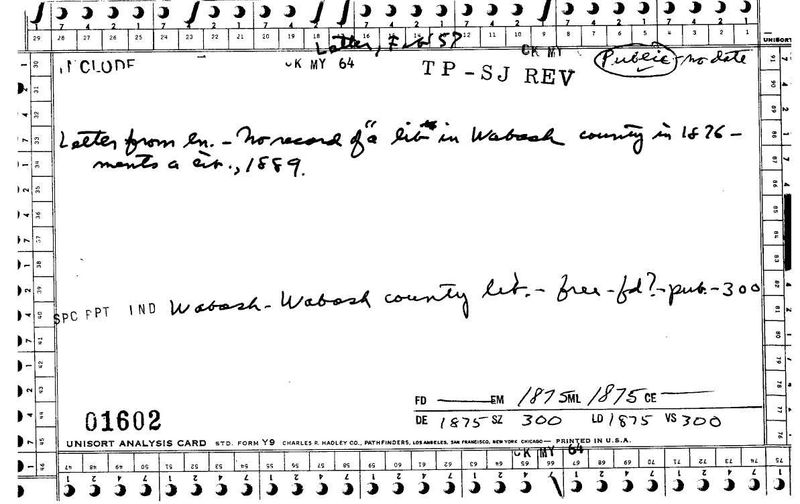 Letter, F W 57
29 28 27 26 25 24 23 22 21 20 19 18 17 16 15 14 13 12 11 10 9 8 7 6 5 4 3 2 1 UNISORT
INCLUDE CK MY 64 TP-SJ REV CK MY Public - no date
Letter from ln. - No record of "a lib" in Wabash county in 1876 -
ments a lib., 1889.
SPC FPT IND Wabash - Wabash county lib. - free - fd? - pub. - 300
FD EM 1875 ML 1875 CE
01602
DE 1875 SZ 300 LD 1875 VS 300
UNISORT ANALYSIS CARD STD. FORM Y9 CHARLES R. HADLEY CO., PATHFINDERS, LOS ANGELES, SAN FRANCISCO, NEW YORK CHICAGO — PRINTED IN U.S.A.
CK MY 64
47 48 49 50 51 52 53 54 55 56 57 58 59 60 61 62 63 64 65 66 67 68 69 70 71 72 73 74 75